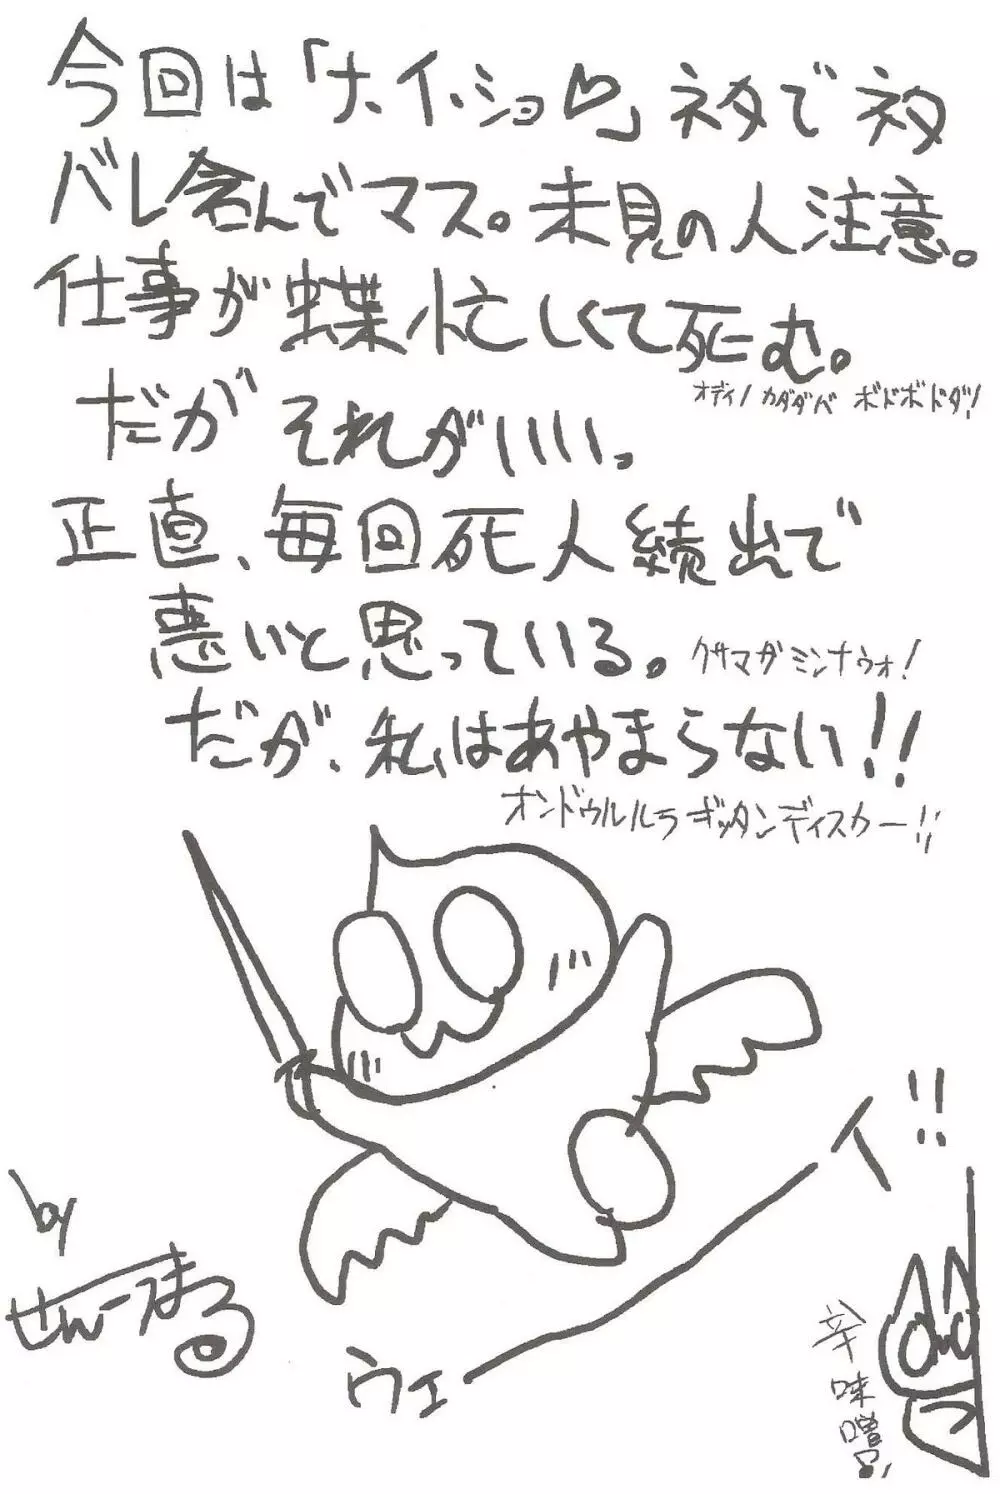 今回は「ナ、イ、ショ♡」ネタでネタ
バレ含んでマス。未見の人注意。
仕事が蝶忙しくて死む。
オディノカダダベ ボドボドダ!
だがそれがいい。
正直、毎回死人続出で
悪いと思っている。
クサマガミンナウォ!
だが、私はあやまらない!!
オンドゥルルラギッタンディスカー!!
ウェーイ!!
by
せんーまる
辛味噌!